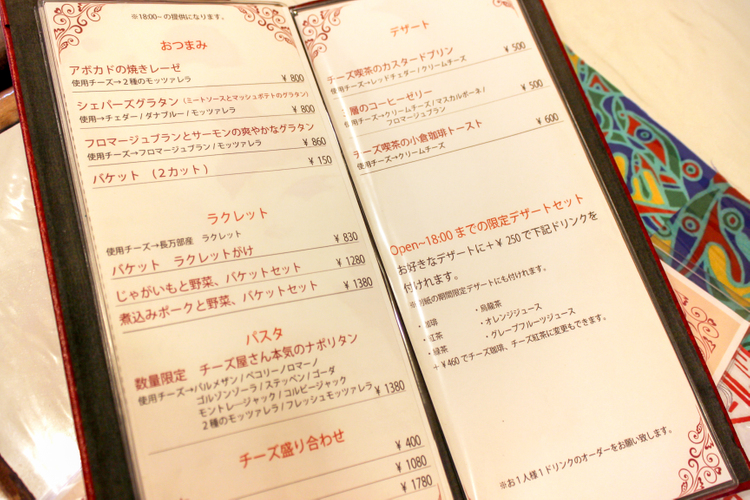 ※18:00~ の提供になります。
おつまみ
アボカドの焼きレーゼ
使用チーズ→2種のモッツァレラ
¥ 800
シェパーズグラタン（ミートソースとマッシュポテトのグラタン）
使用→チェダー / ダナブルー / モッツァレラ
¥ 800
フロマージュブランとサーモンの爽やかなグラタン
使用チーズ→フロマージュブラン / モッツァレラ
¥ 860
バケット （2カット）
¥ 150
ラクレット
使用チーズ→長万部産 ラクレット
バケット ラクレットがけ
¥ 830
じゃがいもと野菜、バケットセット
¥ 1280
煮込みポークと野菜、バケットセット
¥ 1380
パスタ
数量限定 チーズ屋さん本気のナポリタン
使用チーズ→パルメザン / ペコリーノロマーノ
ゴルゾンゾーラ / ステッペン / ゴーダ
モントレージャック / コルビージャック
2種のモッツァレラ / フレッシュモッツァレラ
¥ 1380
チーズ盛り合わせ
¥ 400
¥ 1080
¥ 1780
デザート
チーズ喫茶のカスタードプリン
使用チーズ→レッドチェダー / クリームチーズ
¥ 500
層のコーヒーゼリー
使用チーズ→クリームチーズ / マスカルポーネ /
フロマージュブラン
¥ 500
チーズ喫茶の小倉珈琲トースト
使用チーズ→クリームチーズ
¥ 600
Open~18:00 までの限定デザートセット
お好きなデザートに＋¥ 250で下記ドリンクを
付けれます。
※別紙の期間限定デザートにも付けれます。
・珈琲 ・烏龍茶
・紅茶 ・オレンジジュース
・緑茶 ・グレープフルーツジュース
＋¥460 でチーズ珈琲、チーズ紅茶に変更もできます。
※お1人様1ドリンクのオーダーをお願い致します。